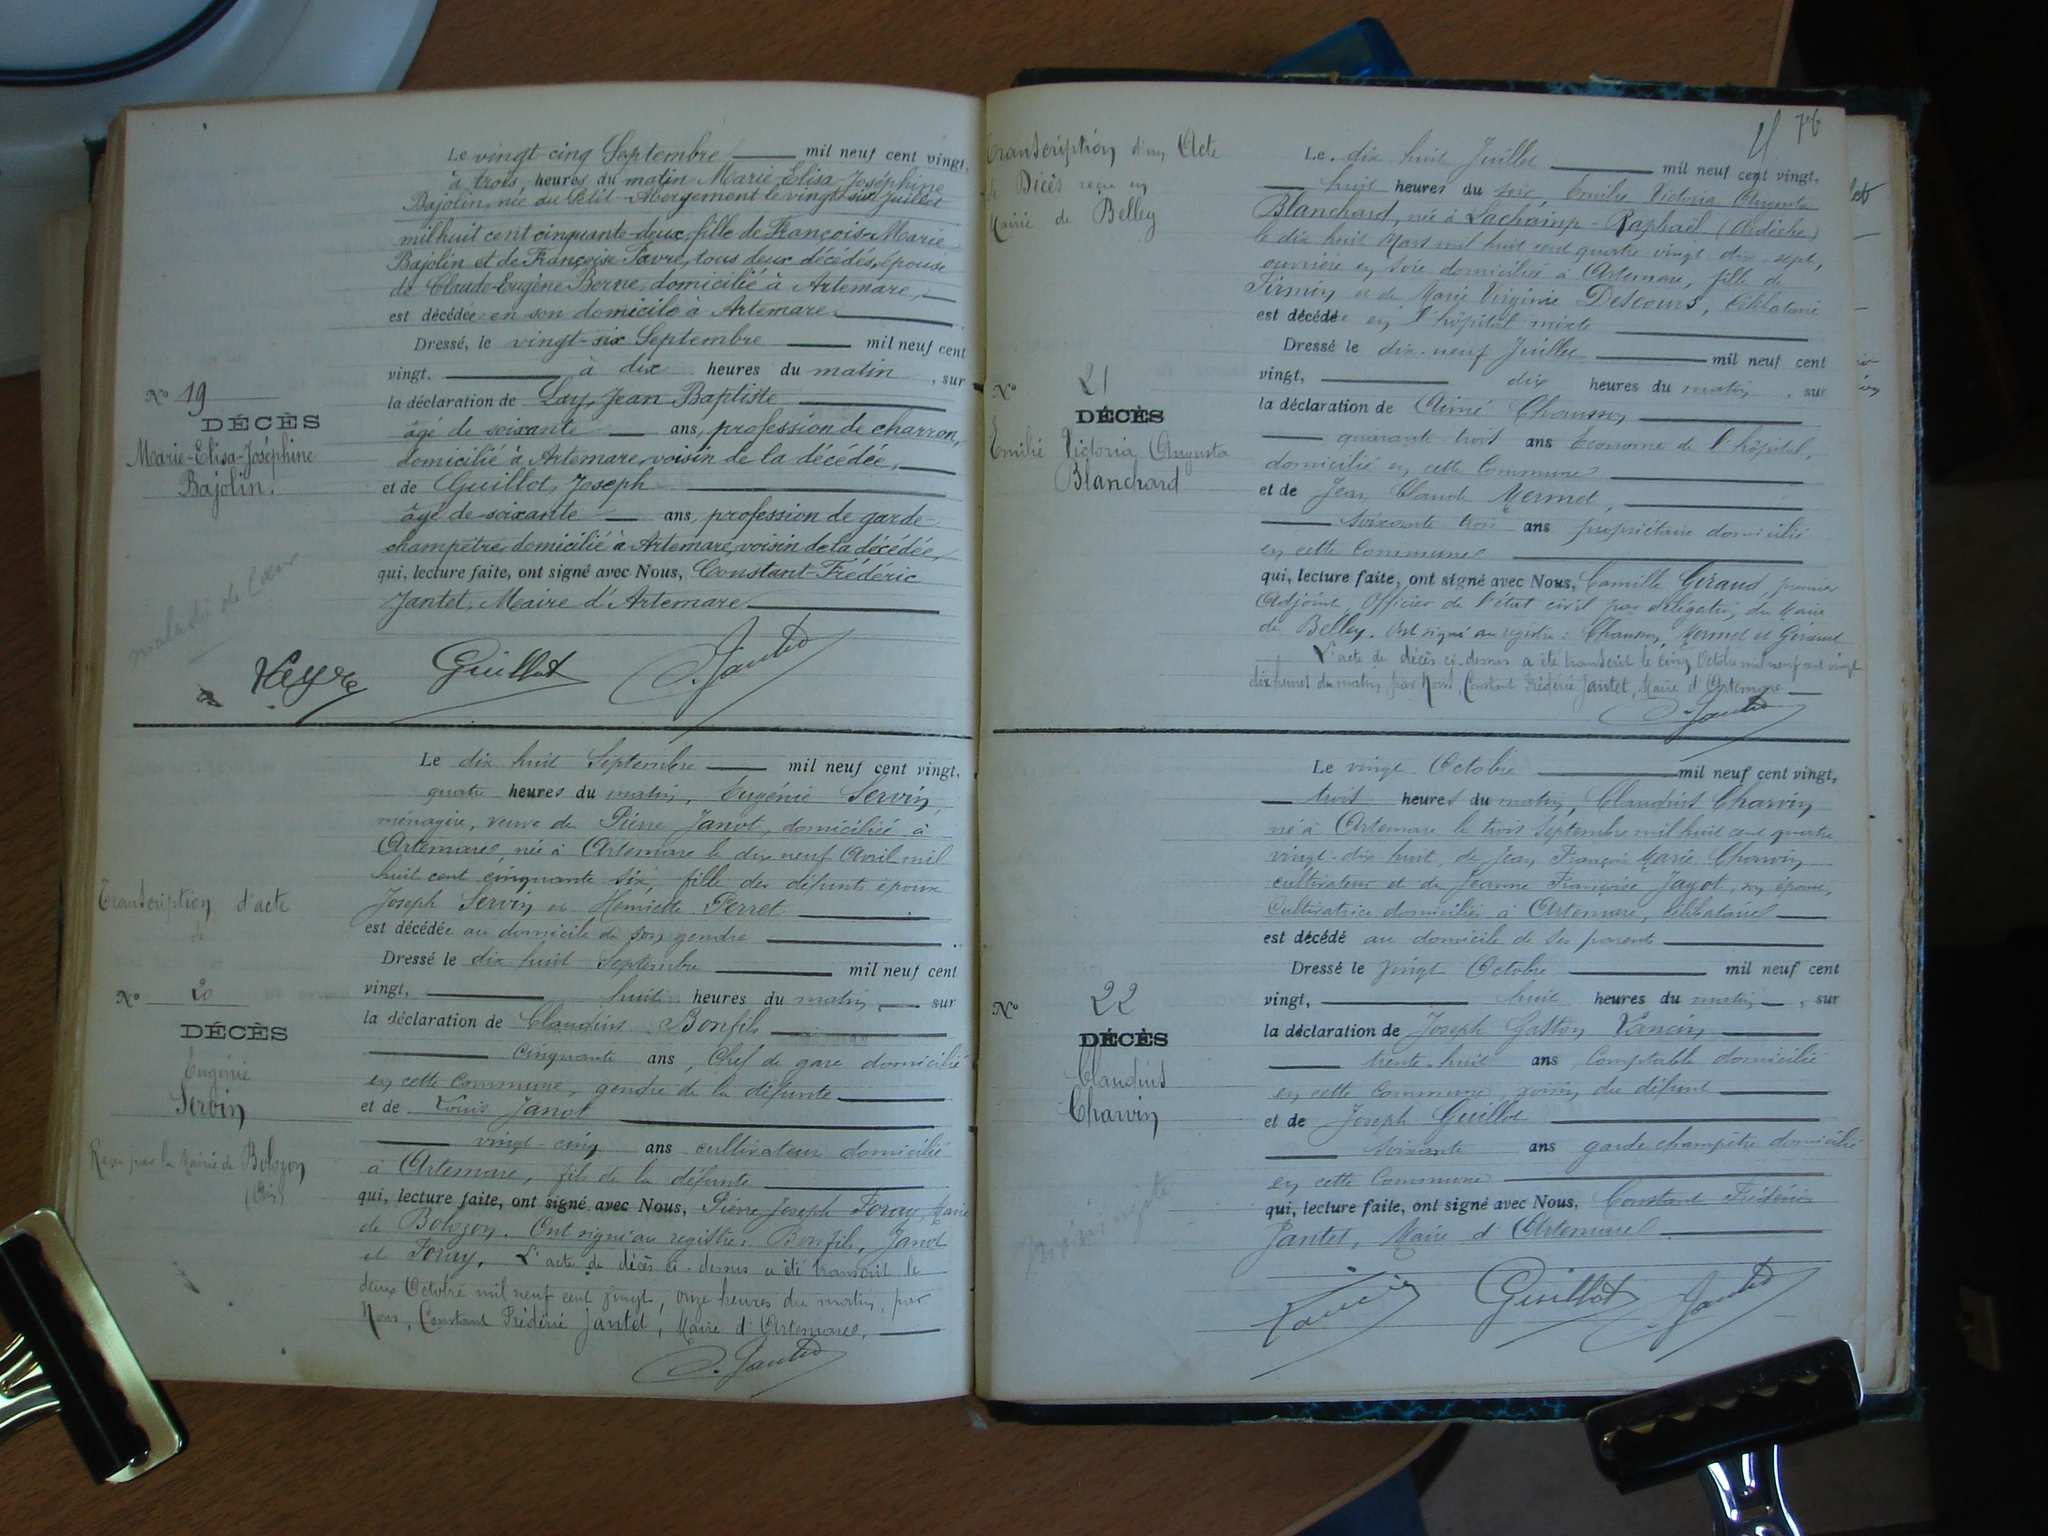 Le vingt cinq Septembre mil neuf cent vingt,
à trois, heures du matin Marie-Elisa-Joséphine
Bajolin, née au Petit-Abergement le vingt-six juillet
mil huit cent cinquante-deux, fille de François-Marie
Bajolin et de Françoise Favre, tous deux décédés, épouse
de Claude-Eugène Berne, domicilié à Artemare,
est décédée en son domicile à Artemare.
Dressé, le vingt-six Septembre mil neuf cent
vingt, à dix heures du matin, sur
la déclaration de Jean Baptiste
âgé de soixante ans, profession de charron,
domicilié à Artemare, voisin de la décédée,
et de Guillot, Joseph
âgé de soixante ans, profession de garde-
champêtre, domicilié à Artemare, voisin de la décédée,
qui, lecture faite, ont signé avec Nous, Constant-Frédéric
Jantet, Maire d'Artemare.
Guillot C. Jantet
No 19
DÉCÈS
Marie-Elisa-Joséphine
Bajolin.
maladie de Cœur
Le dix huit Septembre mil neuf cent vingt,
quatre heures du matin, Eugénie Servin,
ménagère, veuve de Pierre Janot, domiciliée à
Artemare, née à Artemare le dix neuf Avril mil
huit cent cinquante six, fille des défunts époux
Joseph Servin et Henriette Perret
est décédée au domicile de son gendre
Dressé le dix huit Septembre mil neuf cent
vingt, huit heures du matin, sur
la déclaration de Claudius Bonfils
cinquante ans, Chef de gare domicilié
en cette Commune, gendre de la défunte
et de Louis Janot
vingt-cinq ans cultivateur domicilié
à Artemare, fils de la défunte
qui, lecture faite, ont signé avec Nous, Pierre Joseph Foray, Maire
de Bolozon. Ont signé au registre: Bonfils, Janot
et Foray. L'acte de décès ci-dessus a été transcrit le
deux Octobre mil neuf cent vingt, onze heures du matin, par
Nous, Constant Frédéric Jantet, Maire d'Artemare.
C. Jantet
Transcription d'acte
de
No 20
DÉCÈS
Eugénie
Servin
Reçu par la Mairie de Bolozon
(Ain)
76
Transcription d'un Acte
de Décès reçu en
Mairie de Belley
Le dix huit Juillet mil neuf cent vingt,
huit heures du soir, Emilie Victoria Augusta
Blanchard, née à Lachamp-Raphaël (Ardèche)
le dix huit Mars mil huit cent quatre vingt dix-sept,
ouvrière en soie domiciliée à Artemare, fille de
Firmin et de Marie Virginie Descours, Célibataire
est décédée en l'hôpital mixte
Dressé le dix-neuf Juillet mil neuf cent
vingt, dix heures du matin, sur
la déclaration de Aimé Chausson,
quarante trois ans Econome de l'hôpital,
domicilié en cette Commune
et de Jean Claude Mermet,
soixante trois ans propriétaire domicilié
en cette Commune
qui, lecture faite, ont signé avec Nous, Camille Giraud, premier
Adjoint, Officier de l'état civil par délégation du Maire
de Belley. Ont signé au registre: Chausson, Mermet et Giraud
L'acte de décès ci-dessus a été transcrit le cinq Octobre mil neuf cent vingt
dix heures du matin, par Nous, Constant Frédéric Jantet, Maire d'Artemare
C. Jantet
No 21
DÉCÈS
Emilie Victoria Augusta
Blanchard
Le vingt Octobre mil neuf cent vingt,
trois heures du matin, Claudius Charvin
né à Artemare le trois Septembre mil huit cent quatre
vingt-dix huit, de Jean François Marie Charvin
cultivateur et de Jeanne Françoise Jayot, son épouse,
Cultivatrice domiciliés à Artemare, célibataire
est décédé au domicile de ses parents
Dressé le vingt Octobre mil neuf cent
vingt, huit heures du matin, sur
la déclaration de Joseph Gaston Vancin
trente-huit ans Comptable domicilié
en cette Commune voisin du défunt
et de Joseph Guillot
soixante ans garde champêtre domicilié
en cette Commune
qui, lecture faite, ont signé avec Nous, Constant Frédéric
Jantet, Maire d'Artemare
Guillot C. Jantet
No 22
DÉCÈS
Claudius
Charvin
méningite